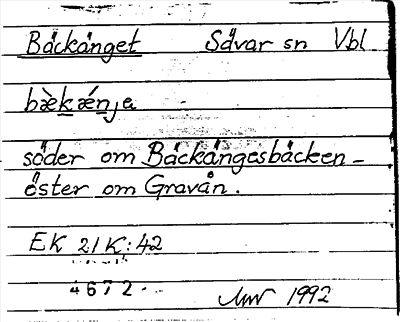 Bäckänget Sävar sn Vbl
bæ̀kǽnja
söder om Bäckängesbäcken -
öster om Gravån.
EK 21K:42
4672
1992